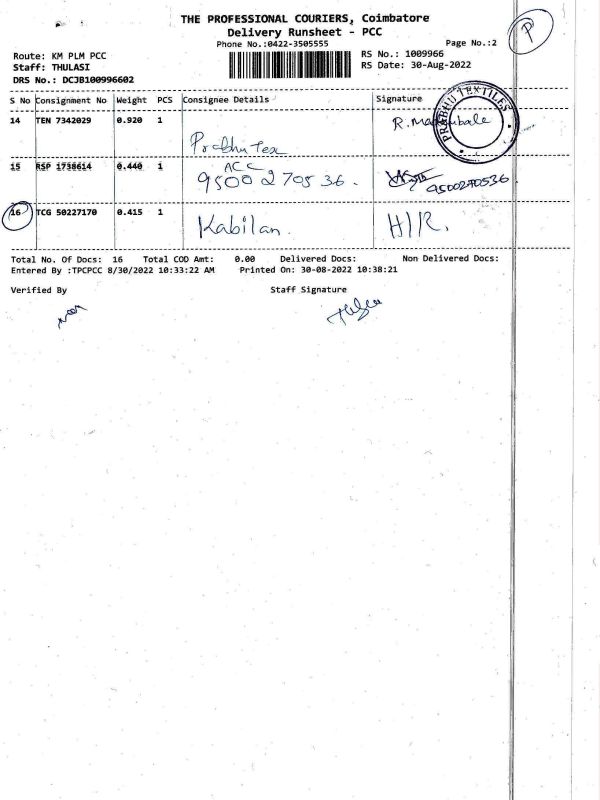 THE PROFESSIONAL COURIERS, Coimbatore
Delivery Runsheet - PCC
Phone No.:0422-3505555
Page No.:2
P
Route: KM PLM PCC
RS No.: 1009966
Staff: THULASI
RS Date: 30-Aug-2022
DRS No.: DCJB100996602
S No Consignment No Weight PCS Consignee Details Signature
14 TEN 7342029 0.920 1
Prabhu Tex
R.
PRABHU TEXTILES
15 RSP 1736614 0.440 1
ACC
9500270536.
9500270536
16 TCG 50227170 0.415 1
Kabilan. H/R.
Total No. Of Docs: 16 Total COD Amt: 0.00 Delivered Docs: Non Delivered Docs:
Entered By :TPCPCC 8/30/2022 10:33:22 AM Printed On: 30-08-2022 10:38:21
Verified By Staff Signature